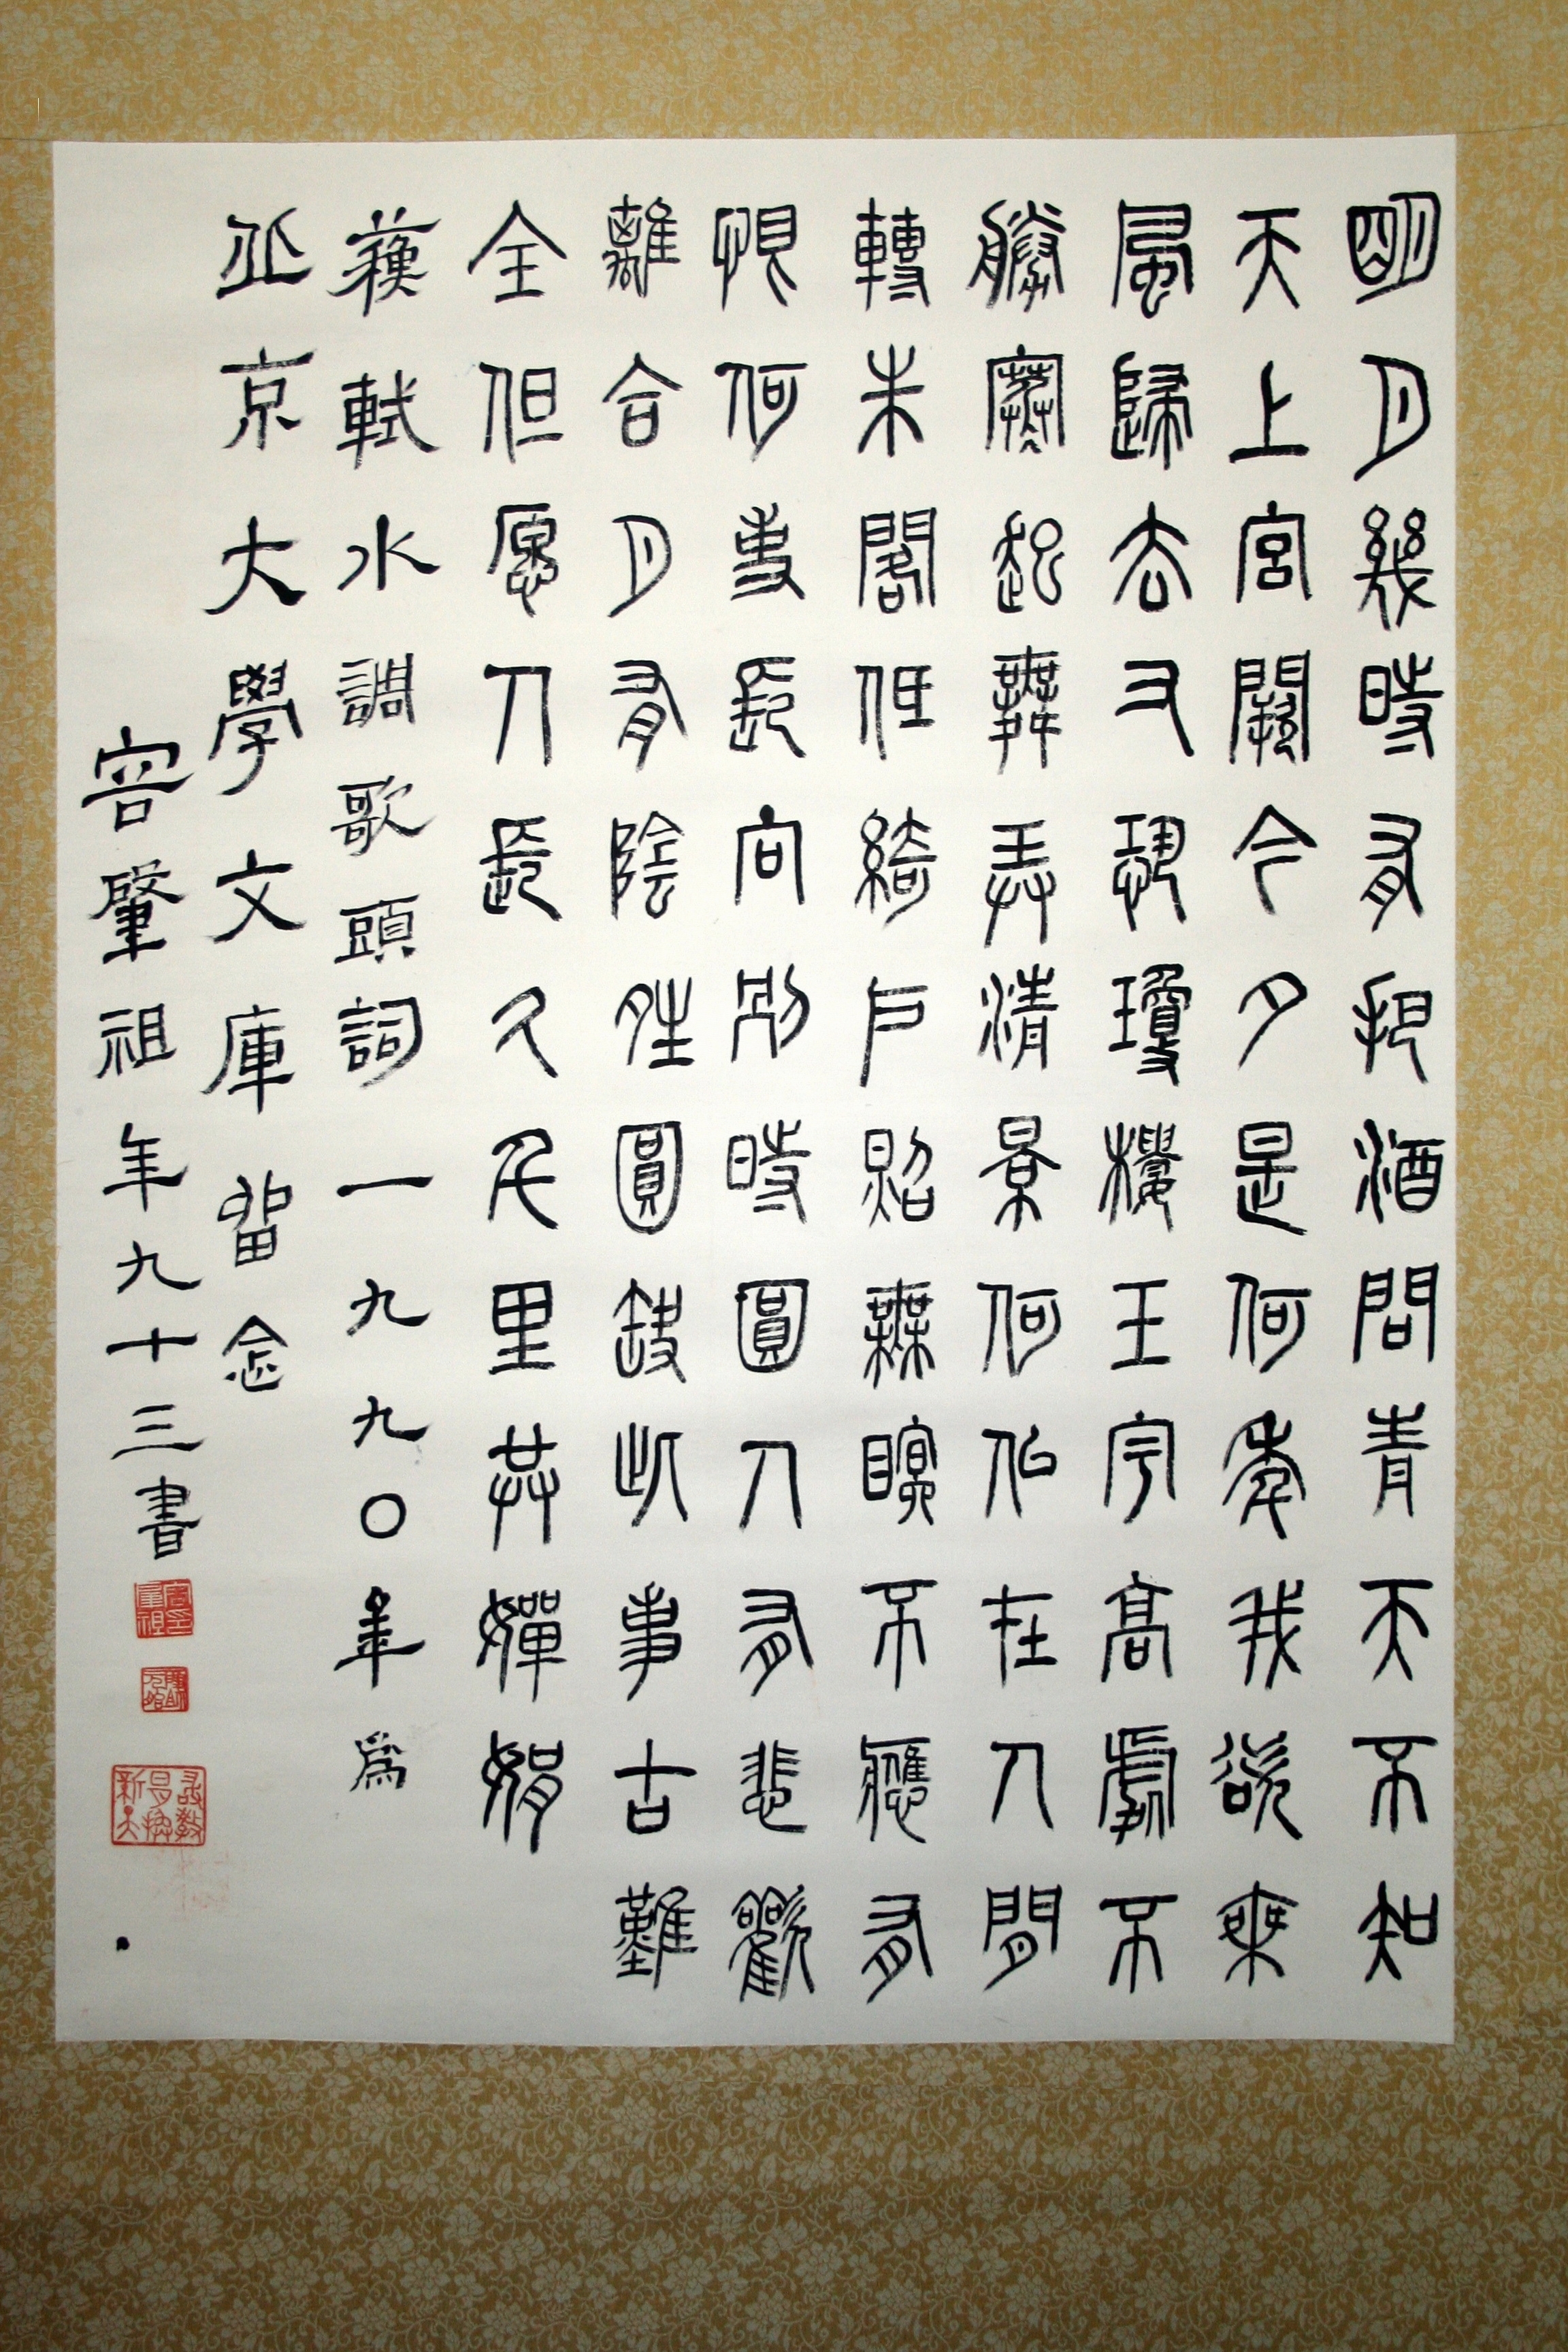 明月幾時有把酒問青天不知
天上宮闕今夕是何年我欲乘
風歸去又恐瓊樓玉宇高處不
勝寒起舞弄清景何似在人間
轉朱閣低綺戶照無眠不應有
恨何事長向別時圓人有悲歡
離合月有陰晴圓缺此事古難
全但愿人長久千里共嬋娟
蘇軾水調歌頭詞一九九〇年為
北京大學文庫留念
容肇祖年九十三書
容肇祖印